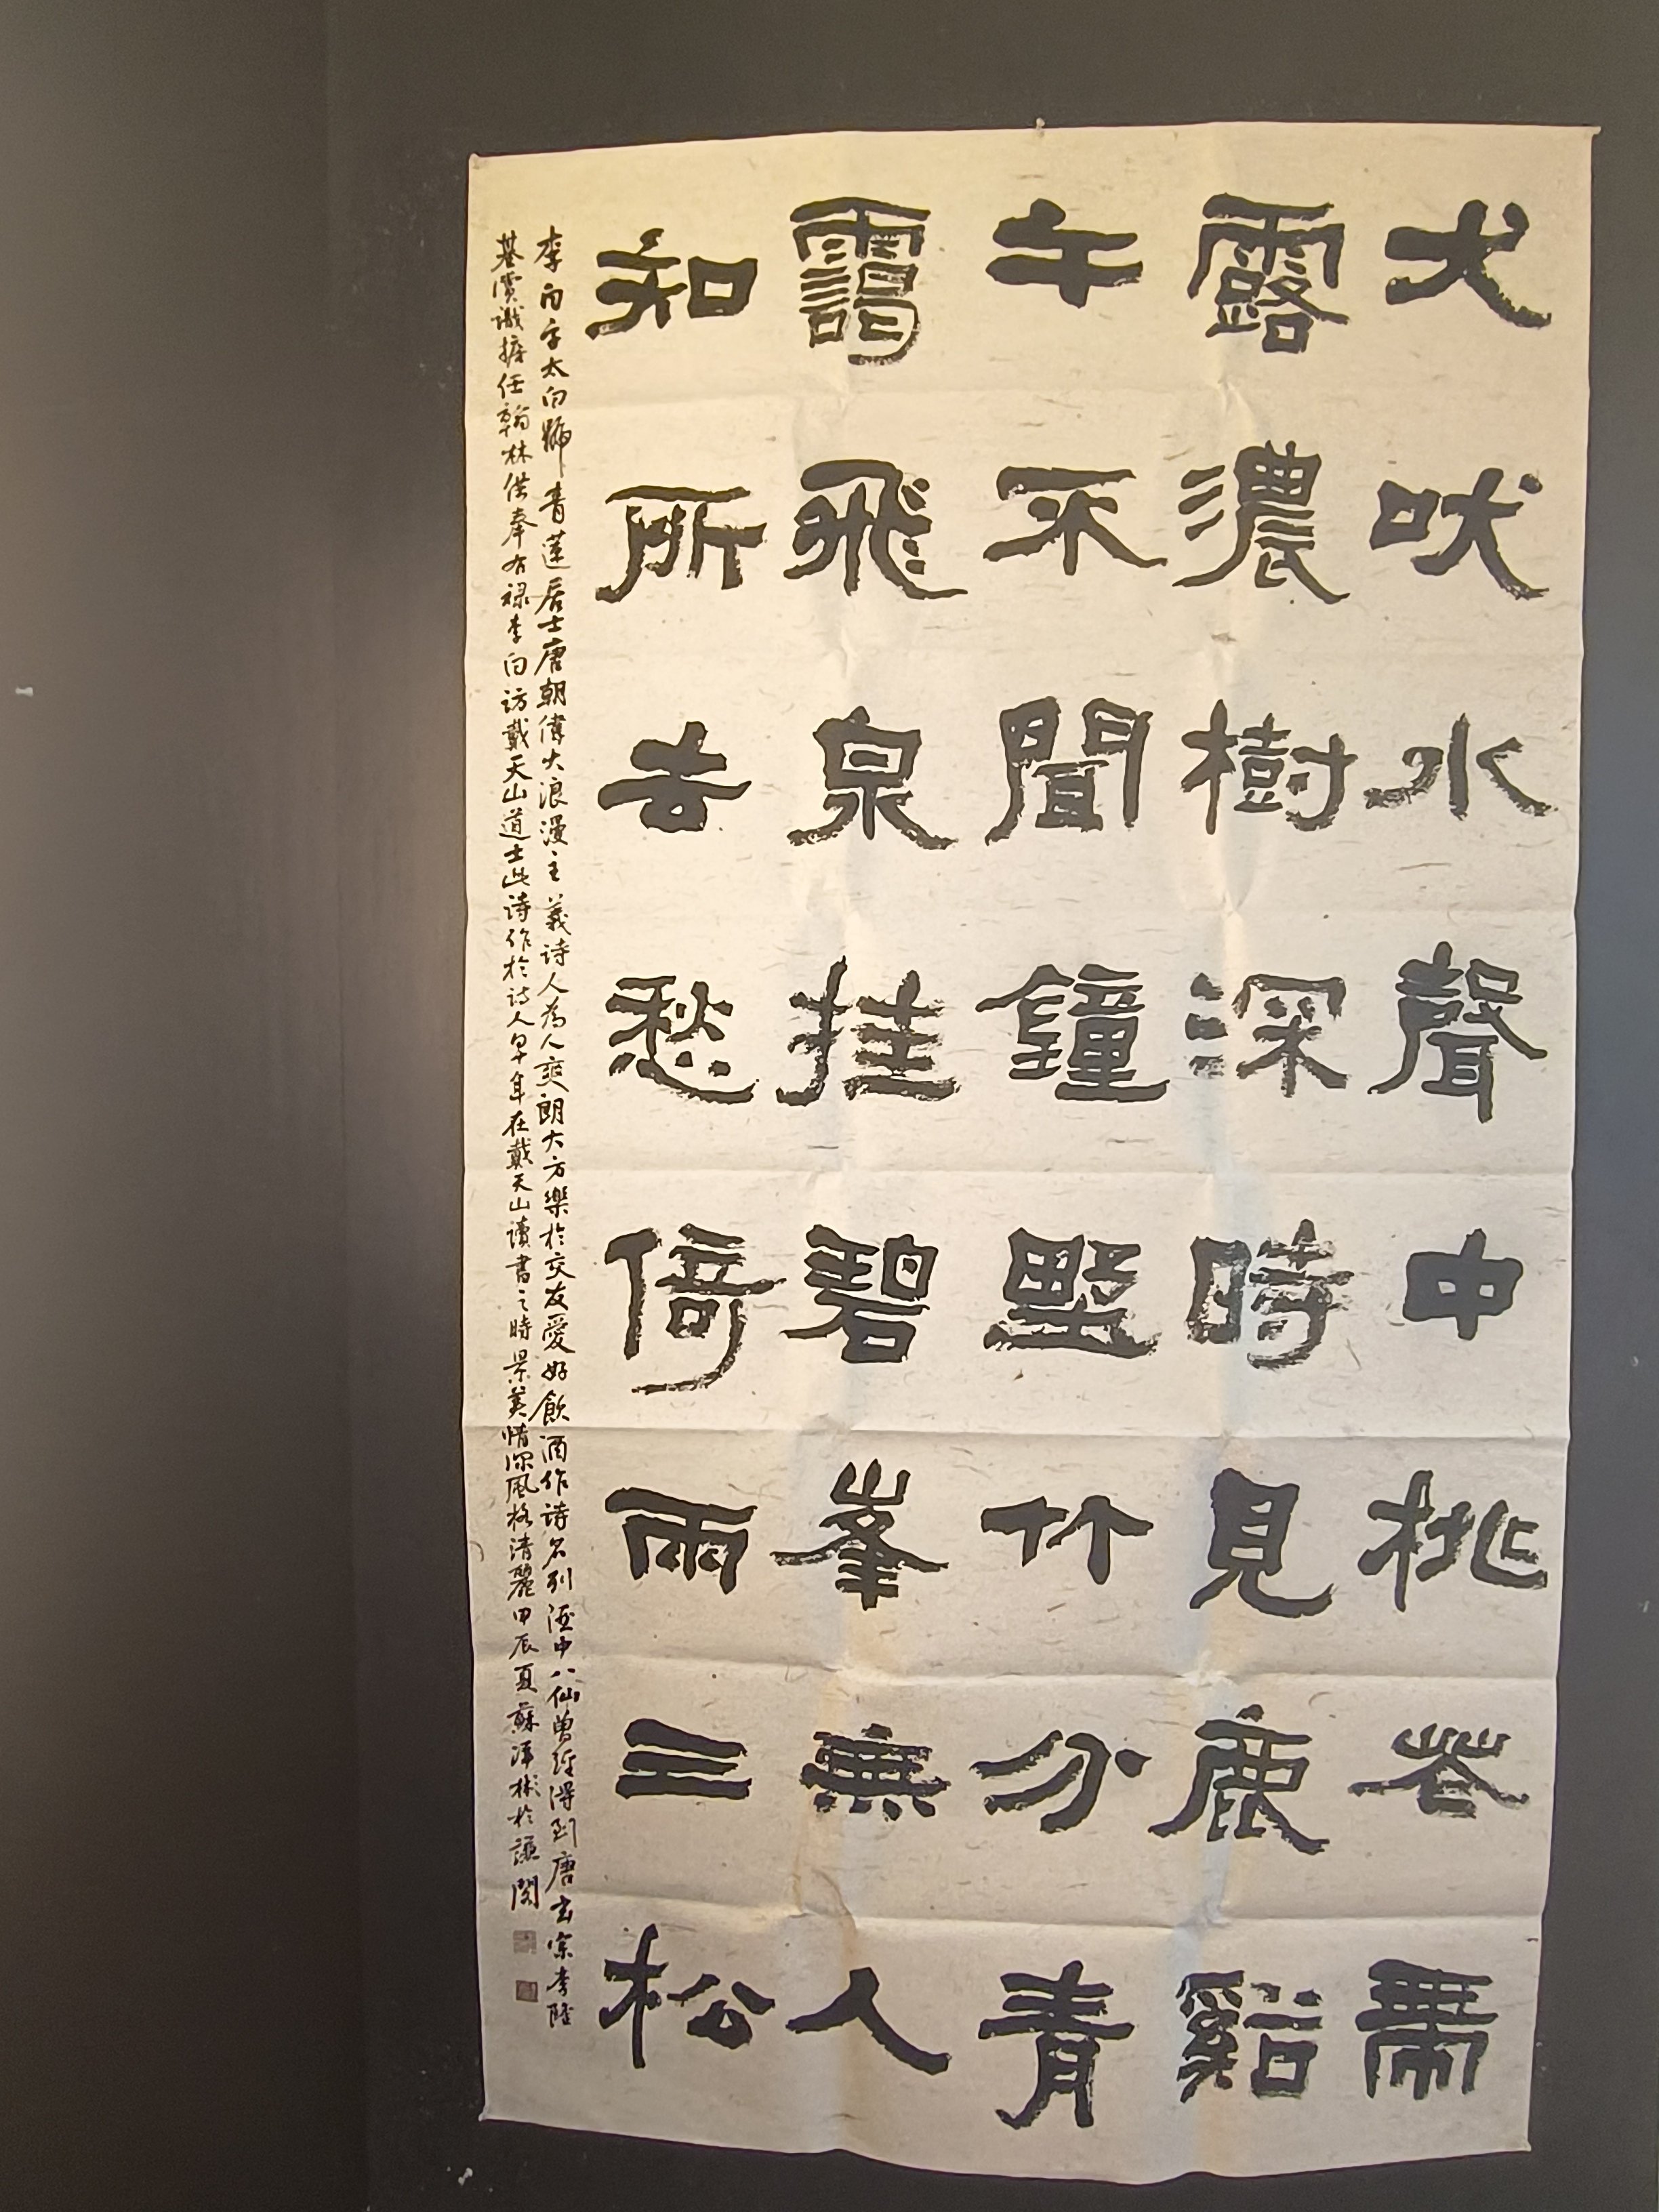 犬吠水聲中桃花帶
露濃樹深時見鹿谿
午不聞鐘野竹分青
靄飛泉挂碧峯無人
知所去愁倚兩三松
李白字太白號青蓮居士唐朝偉大浪漫主義诗人為人爽朗大方樂於交友愛好飲酒作诗名列酒中八仙曾經得到唐玄宗李隆
基賞識擔任翰林供奉有禄李白访戴天山道士此诗作於诗人早年在戴天山讀書之時景美情深風格清麗甲辰夏蘇澤彬於謙閣